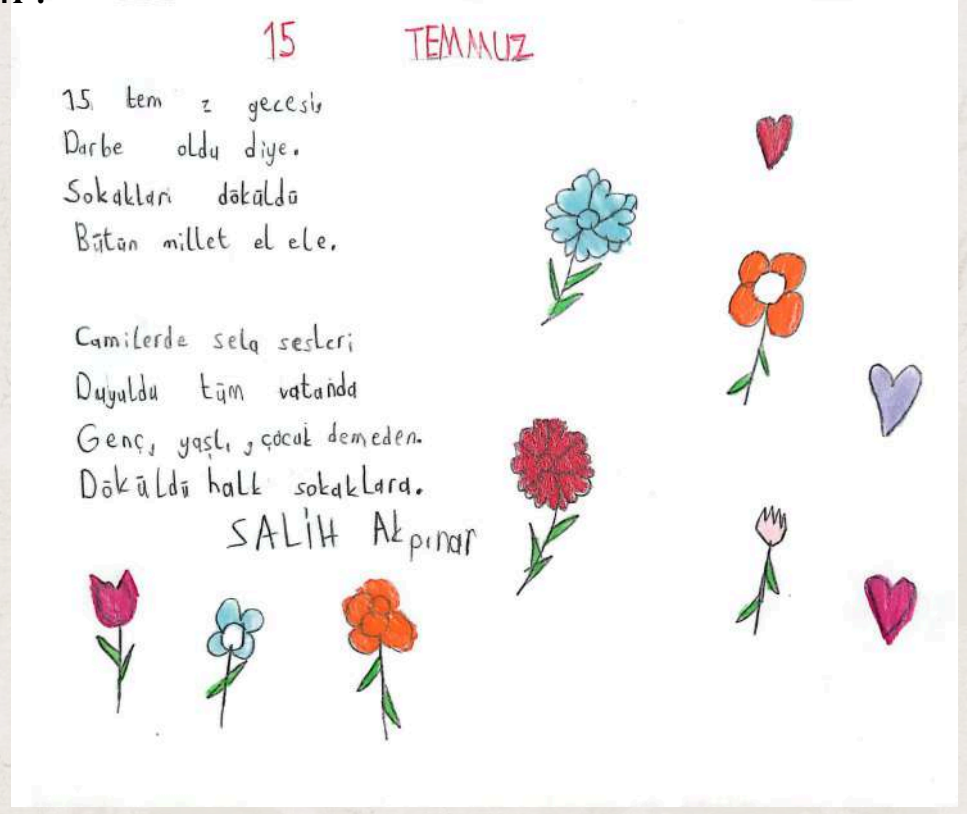 15 TEMMUZ
15 tem z gecesi,
Darbe oldu diye.
Sokakları döküldü
Bütün millet el ele.
Camilerde sela sesleri
Duyuldu tüm vatanda
Genç, yaşlı, çocuk demeden.
Döküldü halk sokaklara.
SALİH Akpınar